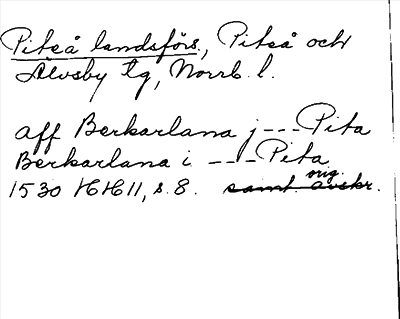 Piteå landsförs., Piteå och
Älvsby tg, Norrb. l.
aff Berkarlana j --- Pita
Berkarlana i --- Pita
1530 HH 11, s. 8. samt avskr. orig.